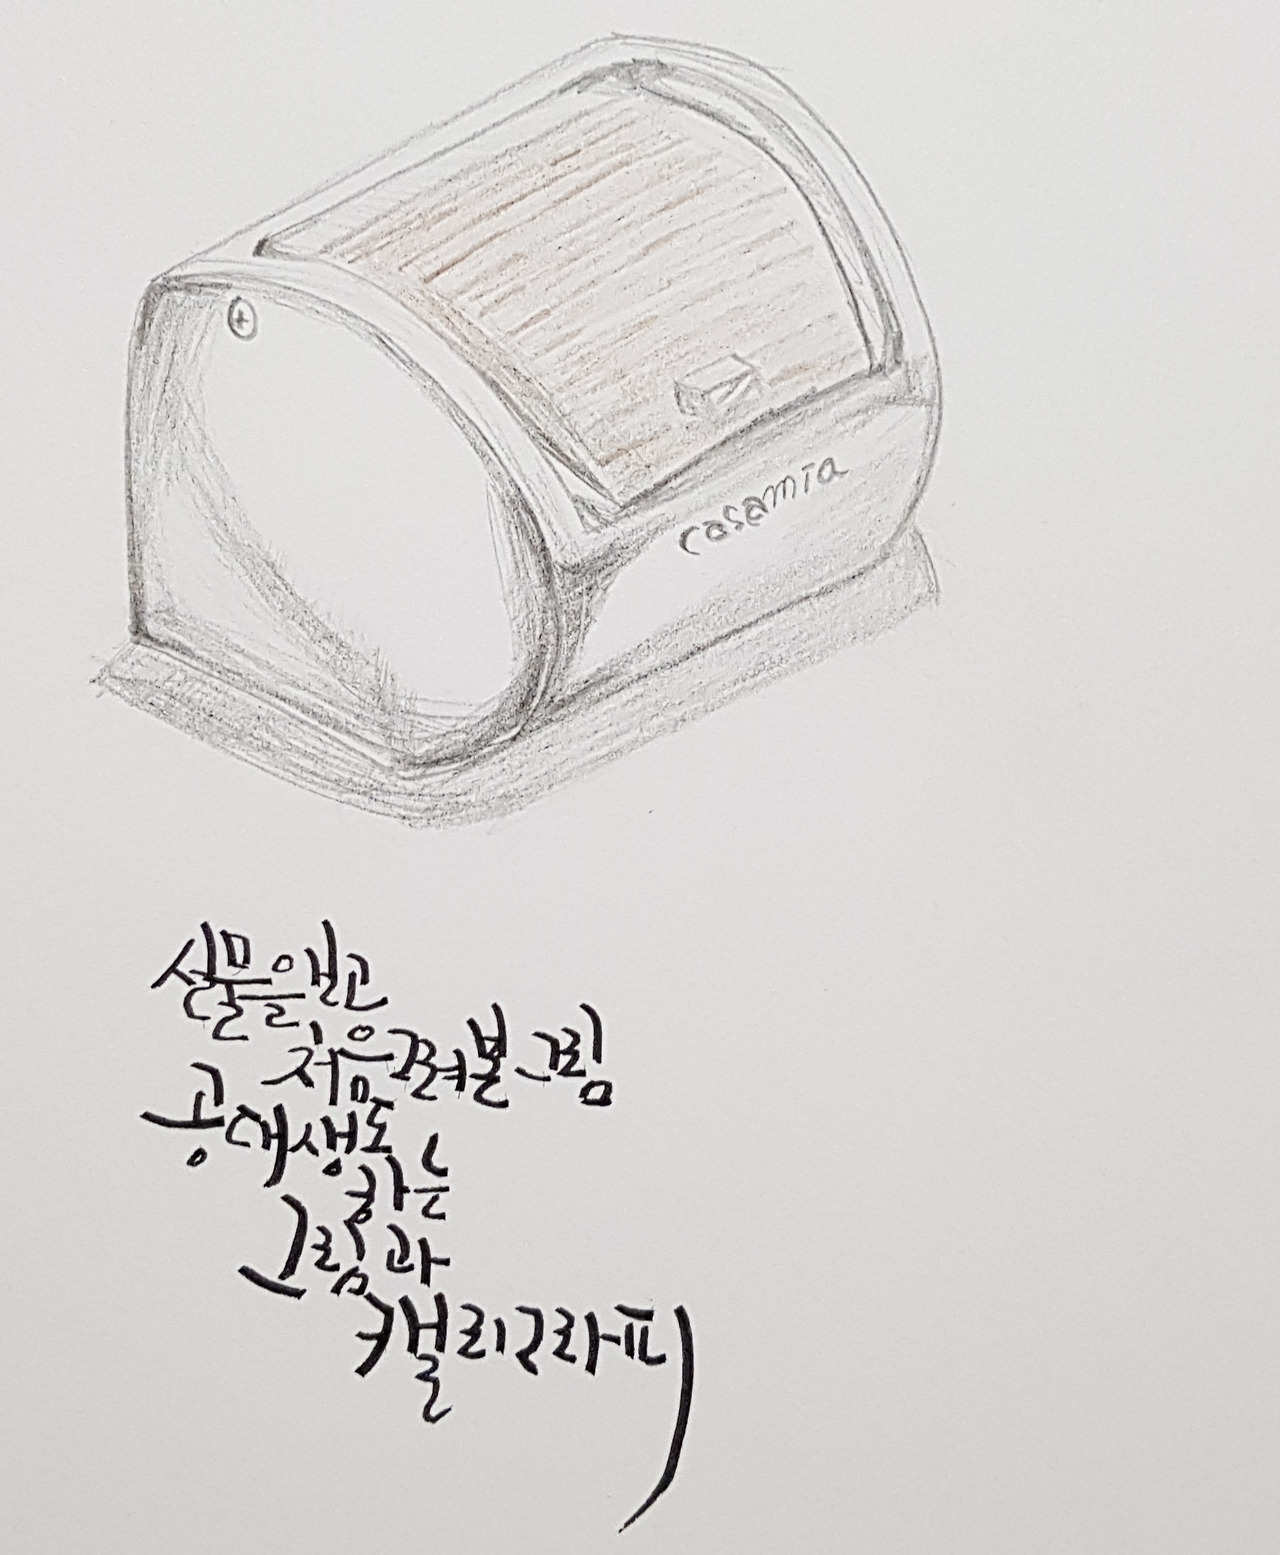 casamia
실물을 보고
처음 그려본 그림
공대생도
하는
그림과
캘리그라피